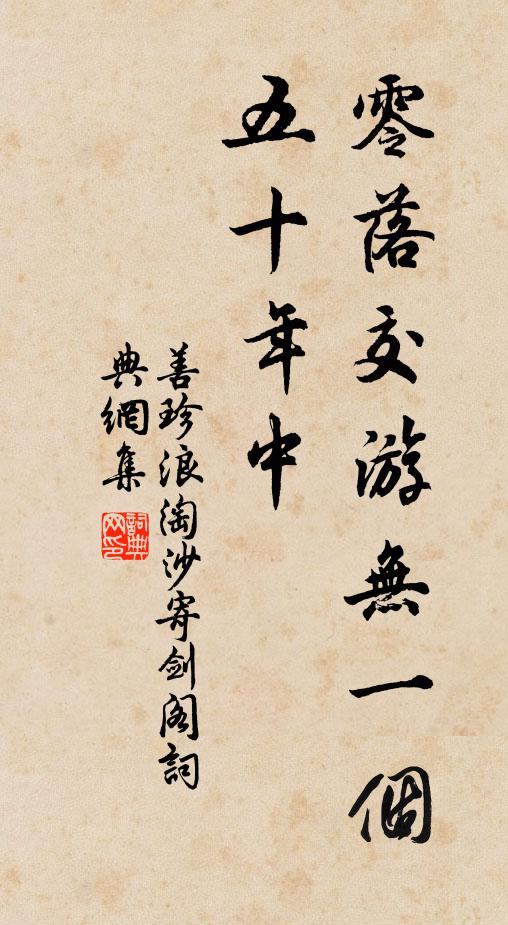 零落交游無一個
五十年中
善珍浪淘沙寄劍阁詞
典網集
詞典
网印